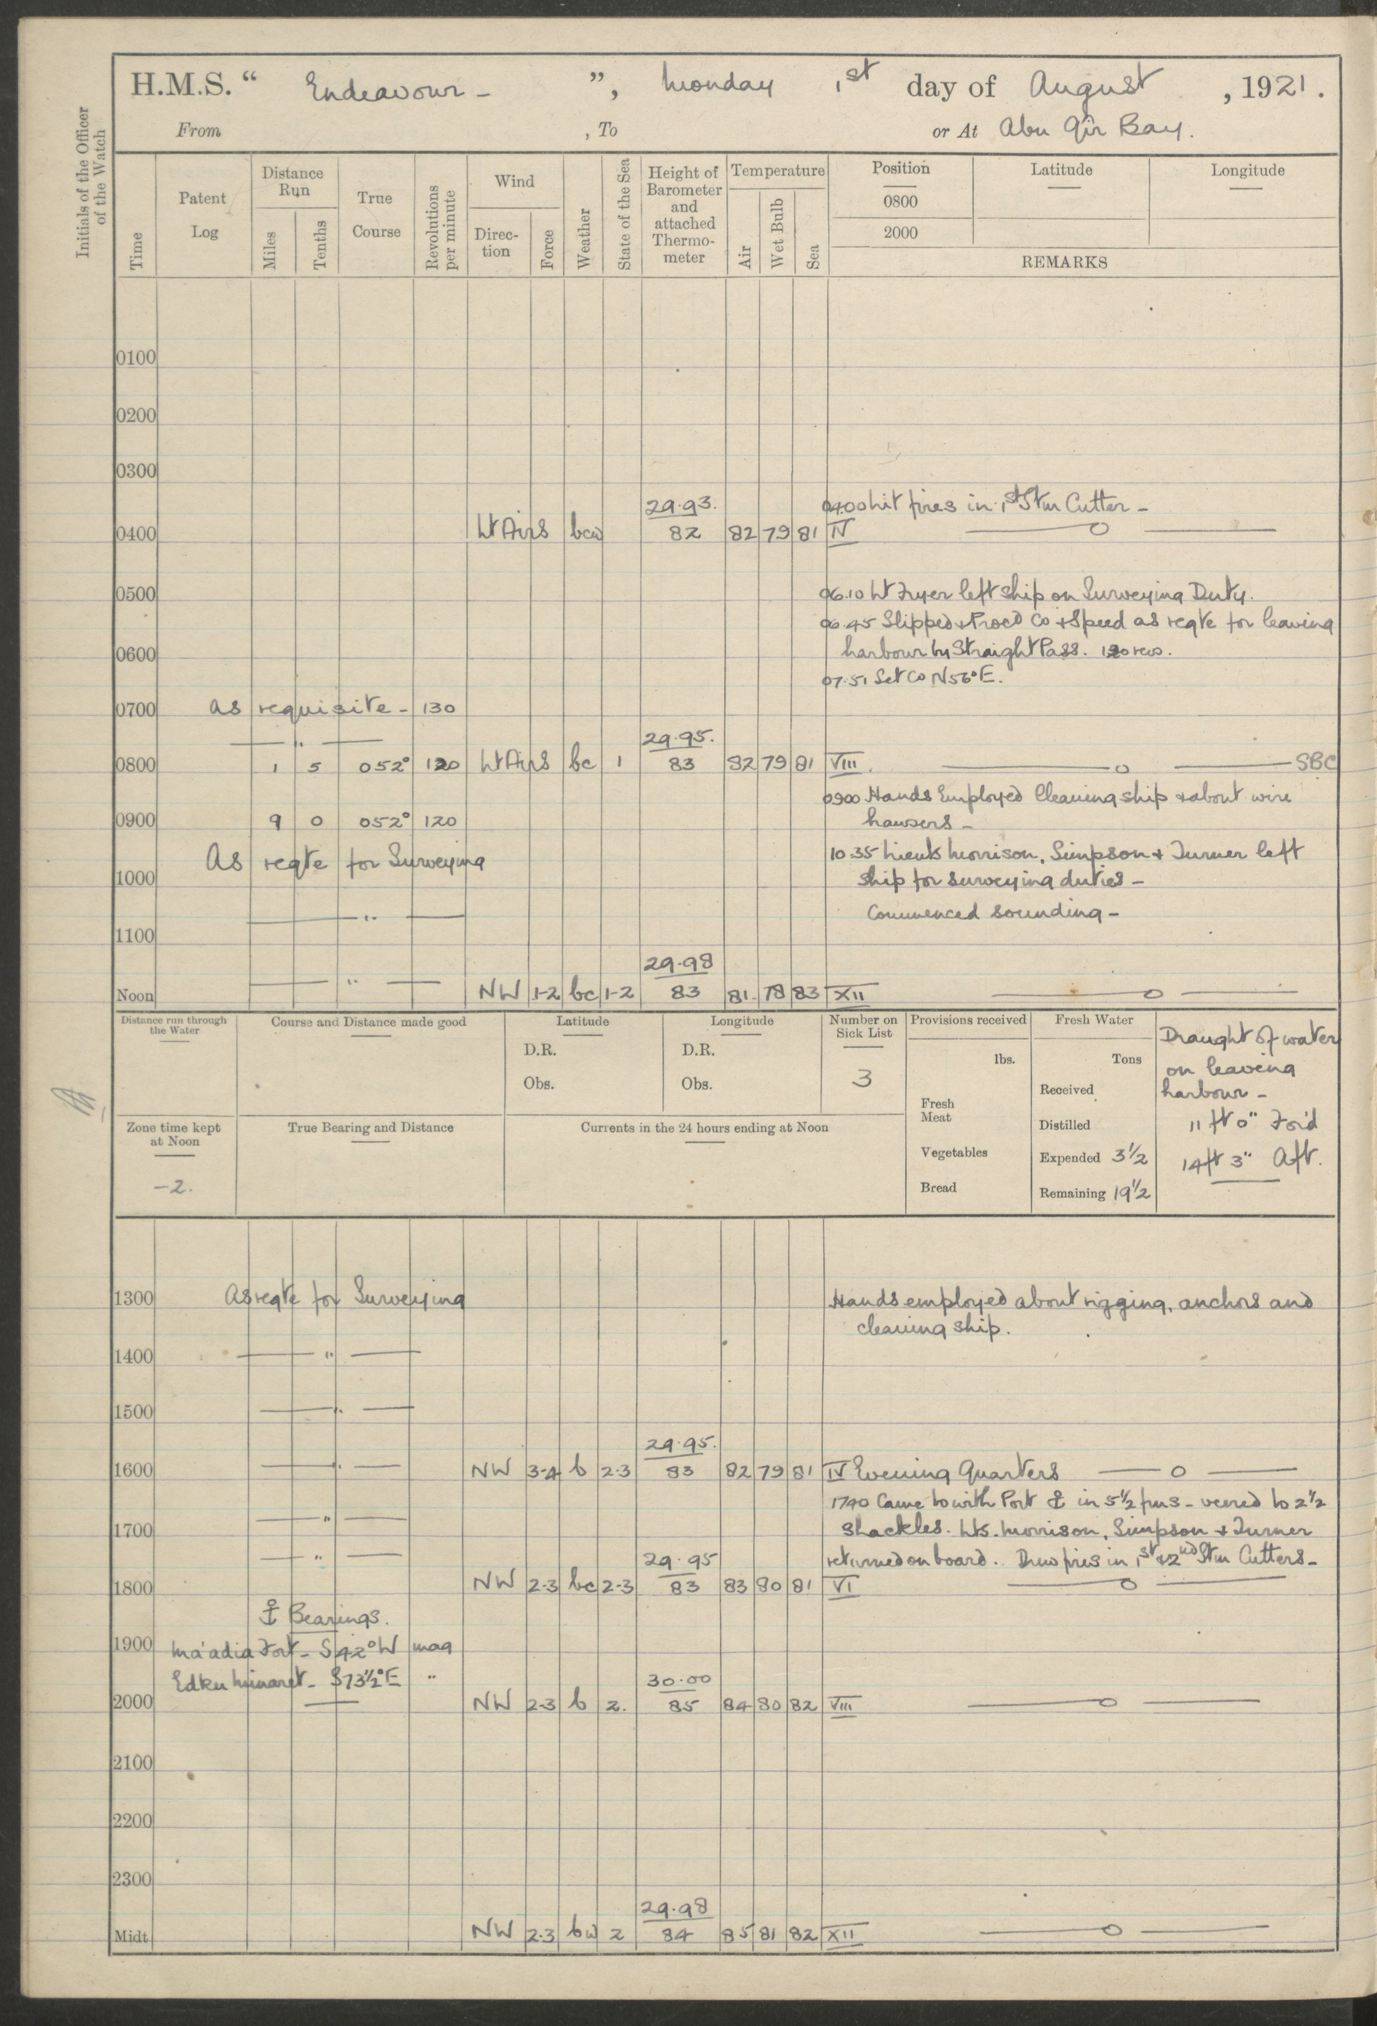 H.M.S. " Endeavour - ", Monday 1st day of August , 1921.
From , To or At Abu Qîr Bay.
Initials of the Officer of the Watch
Time
Patent Log
Distance Run
Miles
Tenths
True Course
Revolutions per minute
Wind
Direction
Force
Weather
State of the Sea
Height of Barometer and attached Thermometer
Temperature
Air
Wet Bulb
Sea
Position
0800
2000
Latitude
Longitude
REMARKS
0100
0200
0300
29.93. 0400 Lit fires in 1st Stm Cutter -
0400 Lt Airs bcw 82 82 79 81 IV
0500 06.10 Lt Fryer left ship on Surveying Duty.
06.45 Slipped & Proc'd Co & Speed as reqte for leaving
0600 harbour by Straight Pass. 120 revs.
07.51 Set Co N56°E.
0700 As requisite - 130
" 29.95.
0800 1 5 052° 120 Lt Airs bc 1 83 82 79 81 VIII SBC
0900 Hands Employed Cleaning ship & about wire
0900 9 0 052° 120 hawsers -
As reqte for Surveying 10.35 Lieuts Morrison, Simpson & Turner left
1000 ship for surveying duties -
" Commenced sounding -
1100
29.98
Noon " NW 1-2 bc 1-2 83 81 78 83 XII
Distance run through the Water
Course and Distance made good
Latitude
D.R.
Obs.
Longitude
D.R.
Obs.
Number on Sick List
3
Provisions received
lbs.
Fresh Meat
Vegetables
Bread
Fresh Water
Tons
Received
Distilled
Expended 3½
Remaining 19½
Draught of water
on leaving
harbour -
11 ft 0" For'd
14 ft 3" Aft.
Zone time kept at Noon
-2.
True Bearing and Distance
Currents in the 24 hours ending at Noon
1300 As reqte for Surveying Hands employed about rigging, anchors and
cleaning ship.
1400 "
1500 "
29.95.
1600 " NW 3-4 b 2-3 83 82 79 81 IV Evening Quarters
" 1740 Came to with Port ⚓ in 5½ fms - veered to 2½
1700 shackles. Lts. Morrison, Simpson & Turner
" 29.95 returned on board. Drew fires in 1st & 2nd Stm Cutters -
1800 NW 2-3 bc 2-3 83 83 80 81 VI
⚓ Bearings.
1900 Ma'adia Fort - S42°W mag
Edku Minaret - S73½°E " 30.00
2000 NW 2-3 b 2. 85 84 80 82 VIII
2100
2200
2300
29.98
Midt NW 2-3 bw 2 84 85 81 82 XII